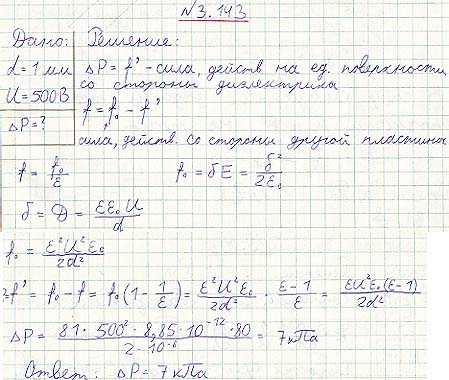 №3.143
Дано: Решение:
d = 1 мм ΔP = f' - сила, действ. на ед. поверхности
со стороны диэлектрика
U = 500В f = f₀ - f'
ΔP = ?
сила, действ. со стороны другой пластины
f = f₀/ε f₀ = бE = б²/2ε₀
б = D = εε₀U/d
f₀ = ε²U²ε₀/2d²
f' = f₀ - f = f₀(1 - 1/ε) = ε²U²ε₀/2d² · ε-1/ε = εU²ε₀(ε-1)/2d²
ΔP = 81 · 500² · 8,85·10⁻¹² · 80/2·10⁻⁶ = 7 кПа
Ответ: ΔP = 7 кПа